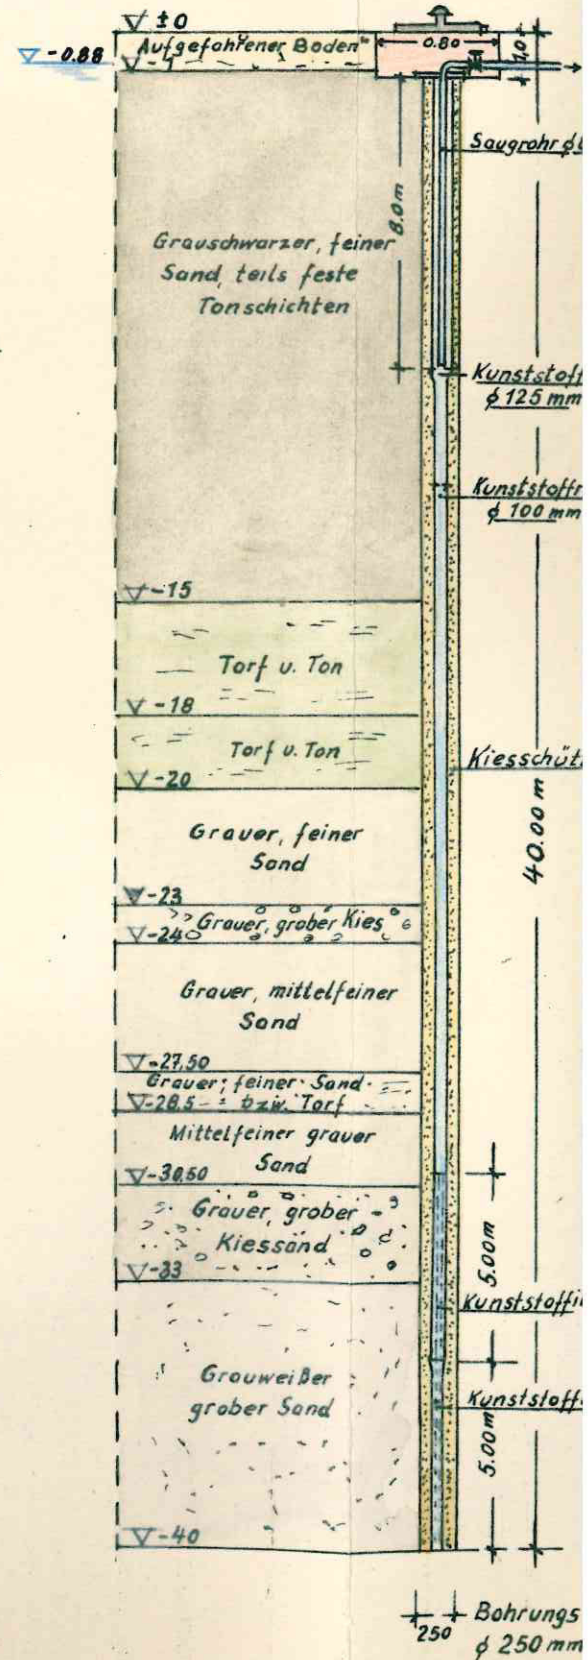 ±0
Aufgefahrener Boden
-0.88
-1
0.80
1,0
Saugrohr ø
8.0m
Grauschwarzer, feiner
Sand, teils feste
Tonschichten
Kunststoff
ø 125 mm
Kunststoffr
ø 100 mm
-15
Torf u. Ton
-18
Torf u. Ton
-20
Kiesschütt
40.00 m
Grauer, feiner
Sand
-23
Grauer, grober Kies
-24
Grauer, mittelfeiner
Sand
-27,50
Grauer, feiner Sand
-28.5
bzw. Torf
Mittelfeiner grauer
Sand
-30,50
Grauer, grober
Kiessand
-33
5.00m
Kunststoffil
Grauweißer
grober Sand
Kunststoff
5.00m
-40
250
Bohrungs
ø 250 mm